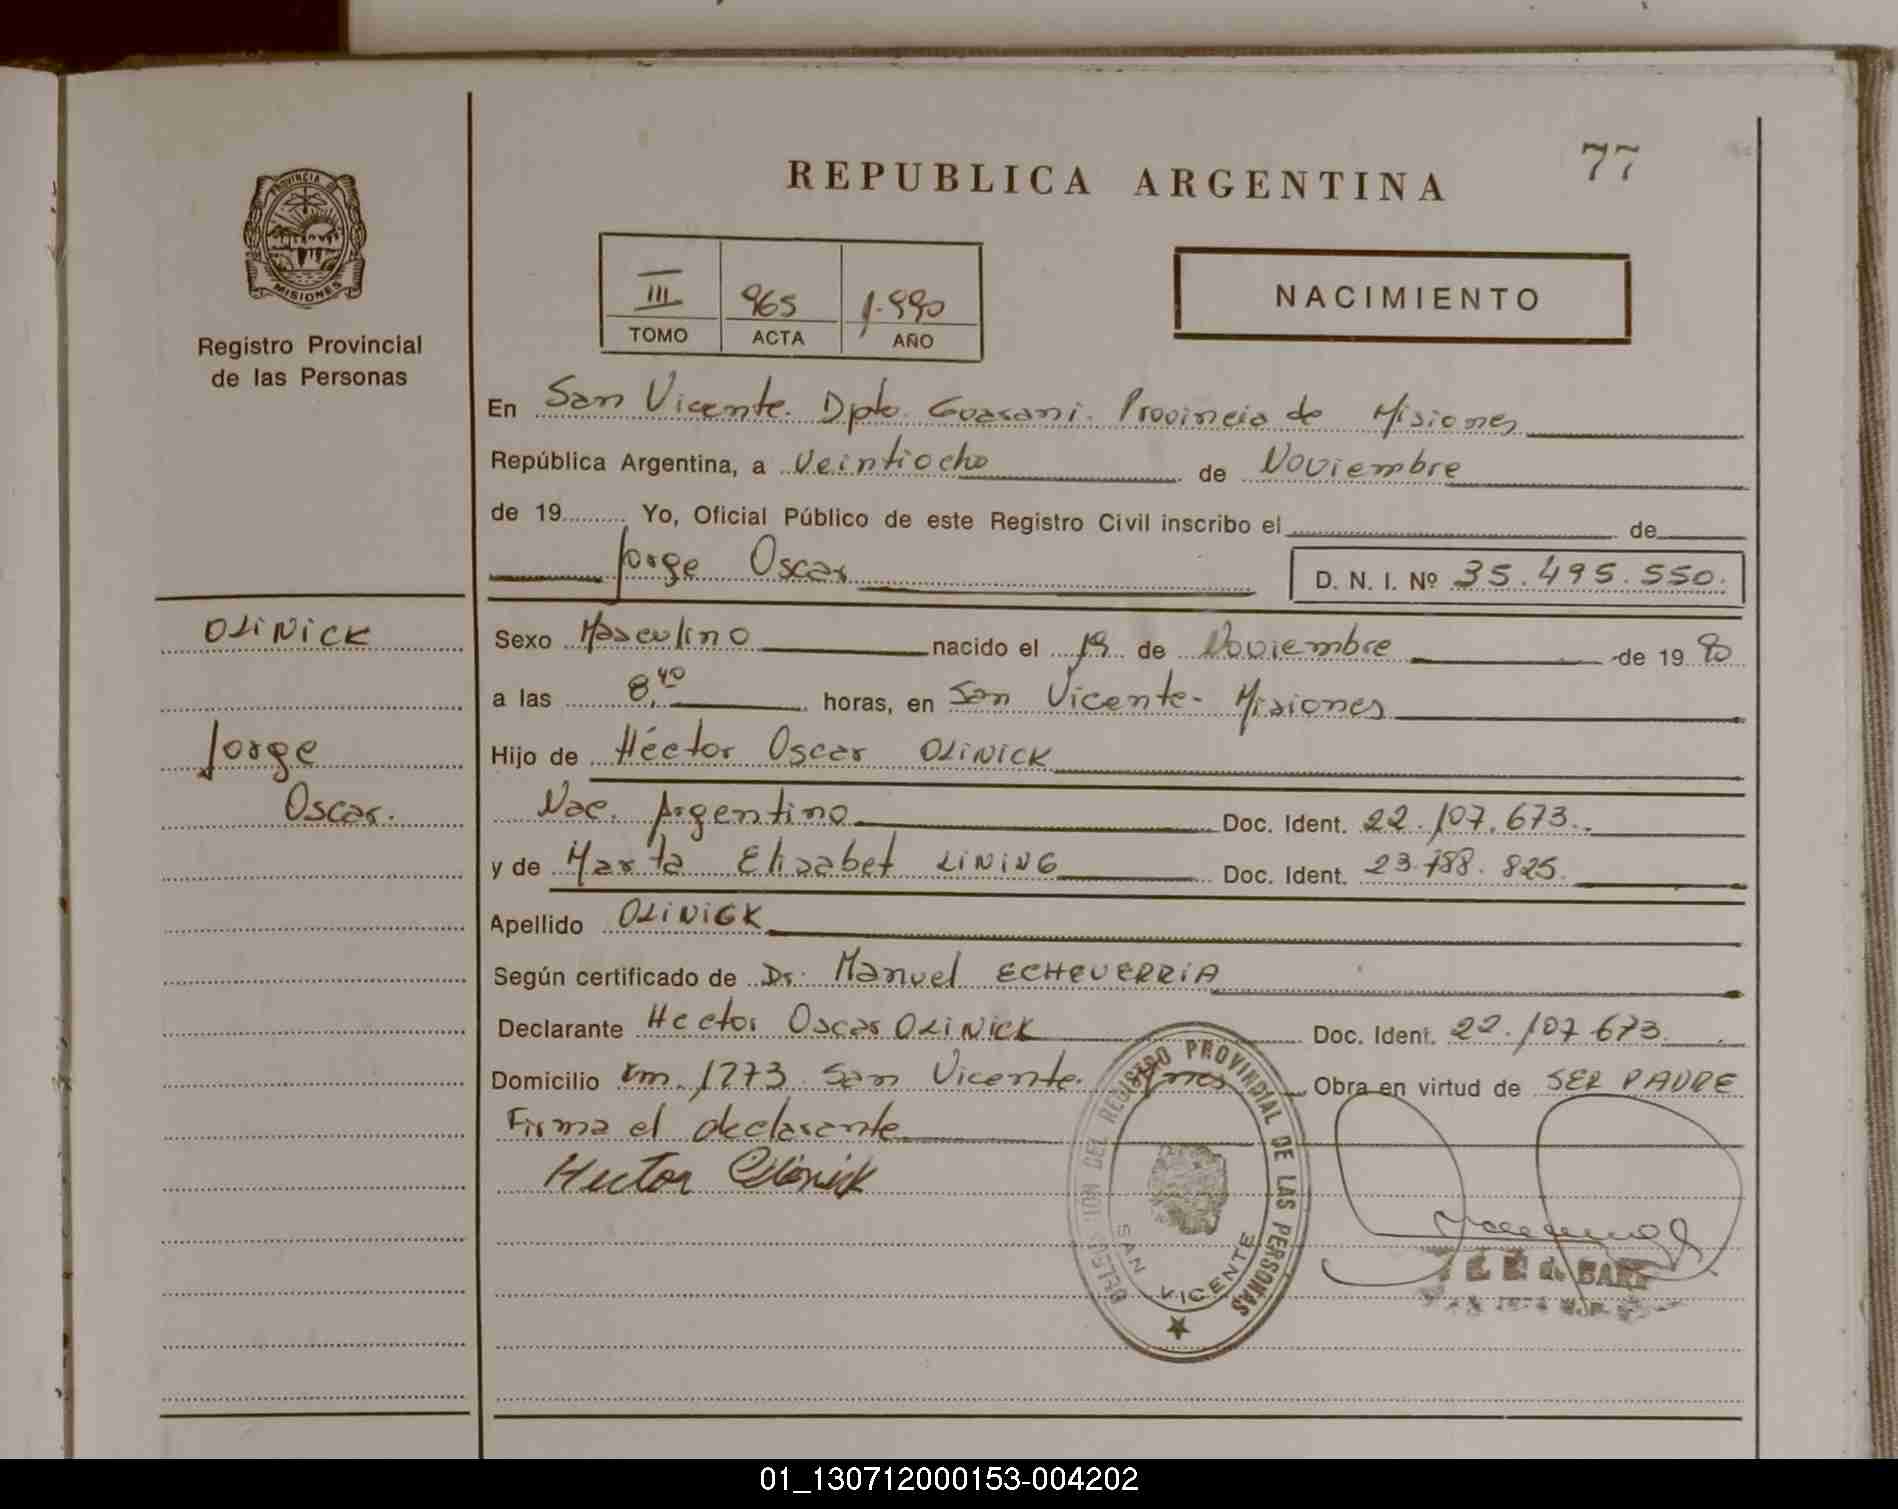 77
REPUBLICA ARGENTINA
PROVINCIA DE
MISIONES
Registro Provincial
de las Personas
III 965 1.990
TOMO ACTA AÑO
NACIMIENTO
En San Vicente. Dpto. Guarani. Provincia de Misiones
República Argentina, a Veintiocho de Noviembre
de 19 Yo, Oficial Público de este Registro Civil inscribo el de
Jorge Oscar D. N. I. Nº 35.495.550.
OLINICK
Jorge
Oscar.
Sexo Masculino nacido el 19 de Noviembre de 19 90
a las 8,40 horas, en San Vicente- Misiones
Hijo de Héctor Oscar OLINICK
Nac. Argentino Doc. Ident. 22.107.673.
y de Marta Elisabet LINING Doc. Ident. 23.788.825.
Apellido OLINICK
Según certificado de Dr. Manuel ECHEVERRIA
Declarante Hector Oscar OLINICK Doc. Ident. 22.107.673.
Domicilio Km. 1273 San Vicente. Mnes Obra en virtud de SER PADRE
Firma el declarante
Hector Olinick
DELEGACION DEL REGISTRO PROVINCIAL DE LAS PERSONAS
SAN VICENTE
01_130712000153-004202